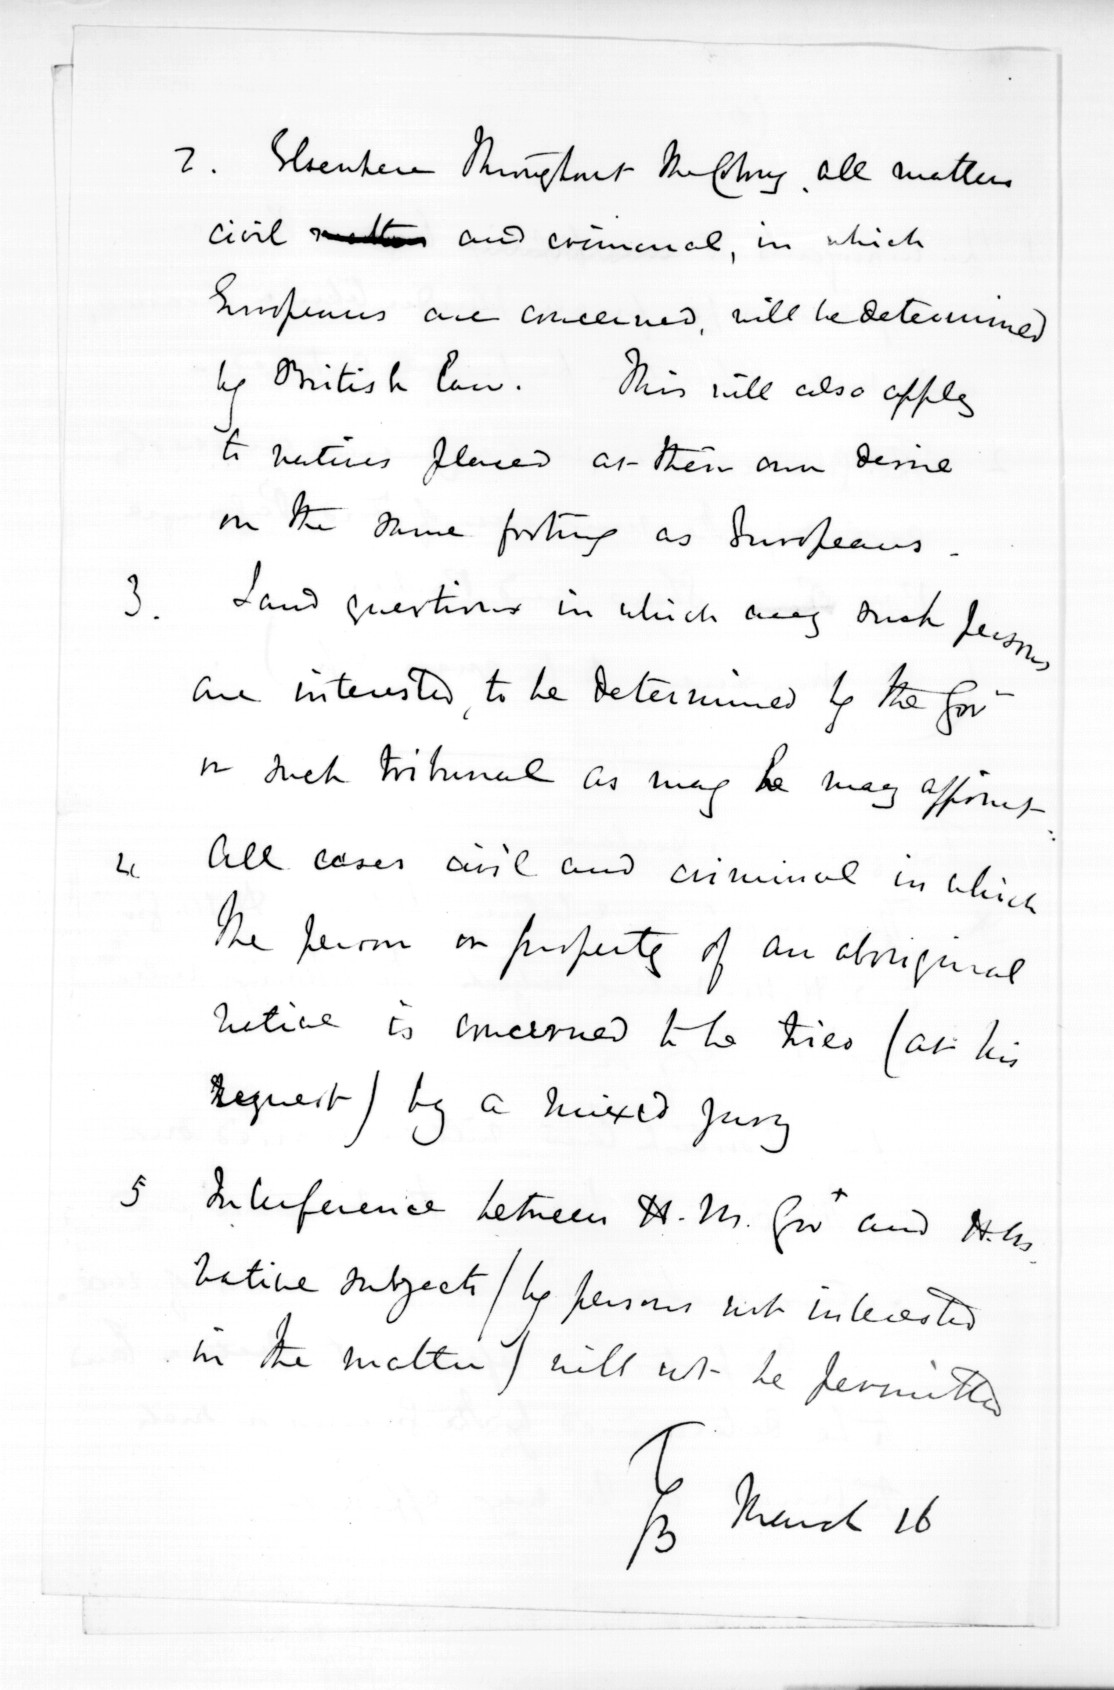 2. Elsewhere throughout the Colony, all matters
civil matters and criminal, in which
Europeans are concerned, will be determined
by British law. This will also apply
to natives placed at their own desire
on the same footing as Europeans.
3. Land questions in which any such persons
are interested, to be determined by the Govr
or such tribunal as may he may appoint.
4 All cases civil and criminal in which
the person or property of an aboriginal
native is concerned to be tried (at his
request) by a mixed jury
5 Interference between H.M. Govt and H.M.
native subjects (by persons not interested
in the matter) will not be permitted
TGB March 16